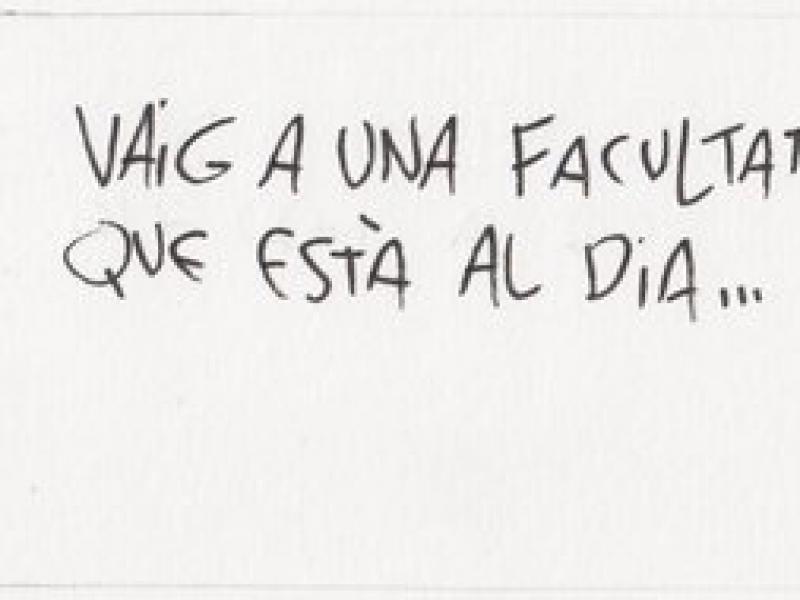 VAiG A UNA FACULTAT
QUE ESTÀ AL DiA...